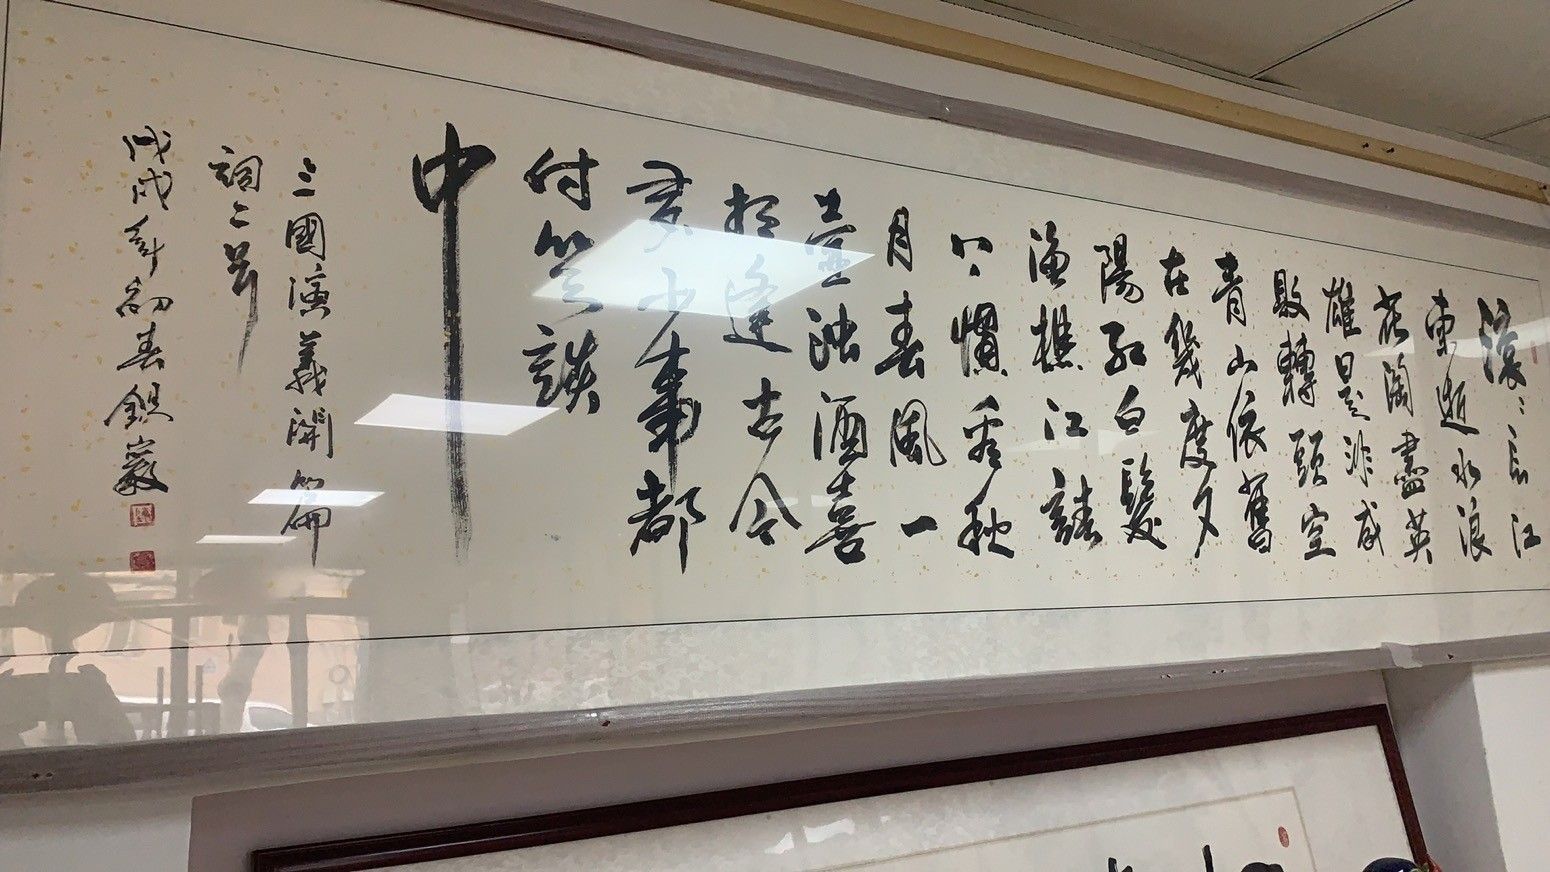 滚〻長江
東逝水浪
花淘盡英
雄是非成
敗轉頭空
青山依舊
在幾度夕
陽紅白髮
漁樵江渚
上慣看秋
月春風一
壺濁酒喜
相逢古今
多少事都
付笑談
中
三國演義開篇
詞一首
戊戌年初春銀巖